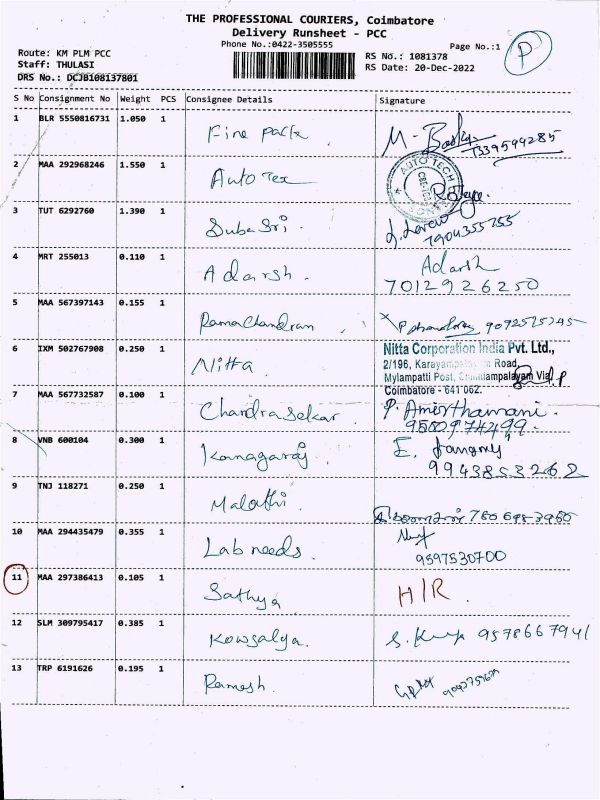 THE PROFESSIONAL COURIERS, Coimbatore
Delivery Runsheet - PCC
Phone No.:0422-3505555
Page No.:1
P
Route: KM PLM PCC
Staff: THULASI
DRS No.: DCJB108137801
RS No.: 1081378
RS Date: 20-Dec-2022
S No Consignment No Weight PCS Consignee Details Signature
1 BLR 5550816731 1.050 1 Fine Pack M-
2 MAA 292968246 1.550 1 Auto Tex
AUTO TECH
3 TUT 6292760 1.390 1 Suba Sri.
7904355755
4 MRT 255013 0.110 1 Adarsh. Adarsh
7012926250
5 MAA 567397143 0.155 1 Ramachandran
6 IXM 502767908 0.250 1 Nitta Nitta Corporation India Pvt. Ltd.,
2/196, Road,
Mylampatti Post, Via
Coimbatore - 641 062.
7 MAA 567732587 0.100 1 Chandrasekar. P. Amirthamani.
8 VNB 600104 0.300 1 Kanagaraj E.
9943853262
9 TNJ 118271 0.250 1 Malathi.
10 MAA 294435479 0.355 1 Lab needs.
9597530700
11 MAA 297386413 0.105 1 Sathya H/R.
12 SLM 309795417 0.385 1 Kowsalya. S. 9578667941
13 TRP 6191626 0.195 1 Ramesh.